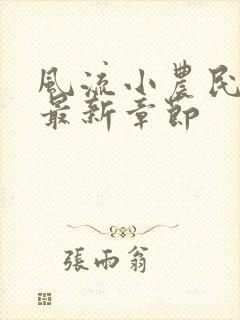 風流小農民
最新章節
張雨翁